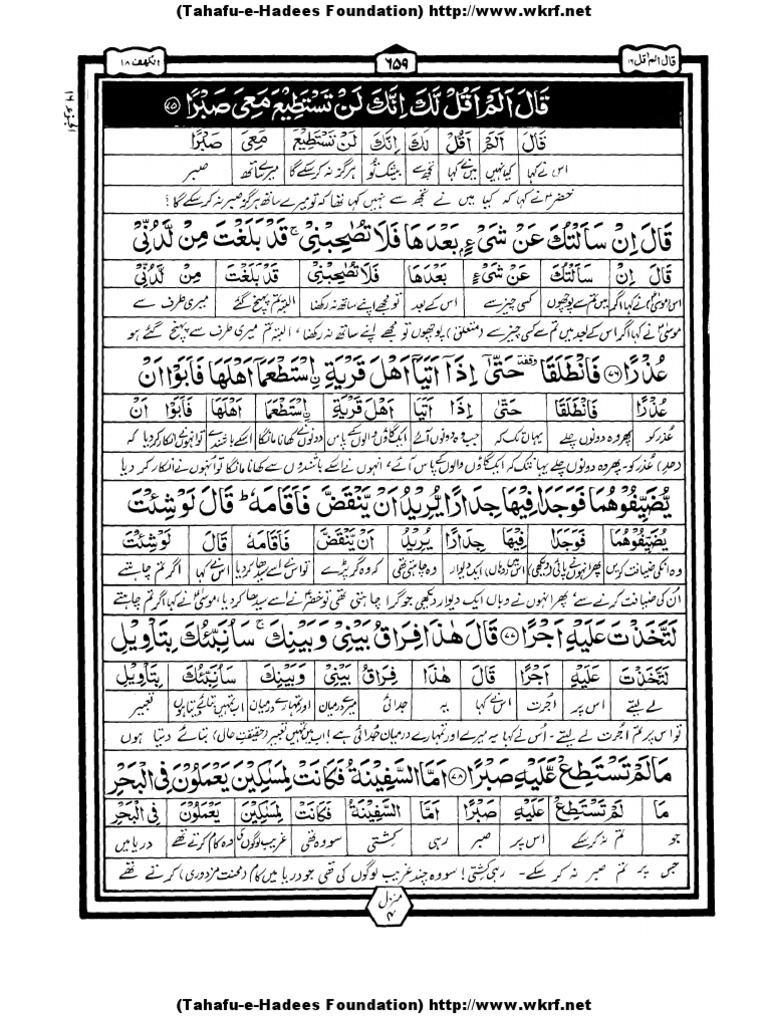 (Tahafu-e-Hadees Foundation) http://www.wkrf.net
قال الم اقل ۱۶
۶۵۹
الكهف ۱۸
الجزء ۱۶
قَالَ اَلَمْ اَقُلْ لَّكَ اِنَّكَ لَنْ تَسْتَطِيْعَ مَعِيَ صَبْرًا ۝۷۵
قَالَ اَلَمْ اَقُلْ لَكَ اِنَّكَ لَنْ تَسْتَطِيْعَ مَعِيَ صَبْرًا
اس نے کہا کیا نہیں میں نے کہا تجھ سے بیشک تُو ہرگز نہ کر سکے گا میرے ساتھ صبر
خضرؑ نے کہا کہ کیا میں نے تجھ سے نہیں کہا تھا کہ تو میرے ساتھ ہرگز صبر نہ کر سکے گا؟
قَالَ اِنْ سَاَلْتُكَ عَنْ شَيْءٍۭ بَعْدَهَا فَلَا تُصٰحِبْنِيْ ۚ قَدْ بَلَغْتَ مِنْ لَّدُنِّيْ
قَالَ اِنْ سَاَلْتُكَ عَنْ شَيْءٍ بَعْدَهَا فَلَا تُصٰحِبْنِيْ قَدْ بَلَغْتَ مِنْ لَدُنِّيْ
اس موسیٰؑ نے کہا اگر میں تم سے پوچھوں کسی چیز سے اس کے بعد تو مجھے اپنے ساتھ نہ رکھنا البتہ تم پہنچ گئے میری طرف سے
موسیٰؑ نے کہا اگر اس کے بعد میں تم سے کسی چیز سے (متعلق) پوچھوں تو مجھے اپنے ساتھ نہ رکھنا، البتہ تم میری طرف سے پہنچ گئے ہو
عُذْرًا ۝۷۶ فَانْطَلَقَا ۥ وقفة حَتّٰٓى اِذَآ اَتَيَآ اَهْلَ قَرْيَةِ ِۨاسْتَطْعَمَآ اَهْلَهَا فَاَبَوْا اَنْ
عُذْرًا فَانْطَلَقَا حَتّٰى اِذَا اَتَيَا اَهْلَ قَرْيَةِ اِسْتَطْعَمَا اَهْلَهَا فَاَبَوْا اَنْ
عذر کو پھر وہ دونوں چلے یہاں تک کہ جب وہ دونوں آئے ایک گاؤں والوں کے پاس دونوں نے کھانا مانگا اسکے باشندے تو انہوں نے انکار کر دیا کہ
(حدِ) عذر کو۔ پھر وہ دونوں چلے یہاں تک کہ ایک گاؤں والوں کے پاس آئے، انہوں نے اسکے باشندوں سے کھانا مانگا تو انہوں نے انکار کر دیا
يُّضَيِّفُوْهُمَا فَوَجَدَا فِيْهَا جِدَارًا يُّرِيْدُ اَنْ يَّنْقَضَّ فَاَقَامَهٗ ۭ قَالَ لَوْ شِئْتَ
يُضَيِّفُوْهُمَا فَوَجَدَا فِيْهَا جِدَارًا يُرِيْدُ اَنْ يَّنْقَضَّ فَاَقَامَهٗ قَالَ لَوْ شِئْتَ
وہ انکی ضیافت کریں پھر انہوں نے پائی (دیکھی) اس میں (وہاں) ایک دیوار وہ چاہتی تھی کہ وہ گر پڑے تو اس نے اسے سیدھا کر دیا اس نے کہا اگر تم چاہتے
اُن کی ضیافت کرنے سے، پھر انہوں نے وہاں ایک دیوار دیکھی جو گرا چاہتی تھی تو خضرؑ نے اسے سیدھا کر دیا، موسیٰؑ نے کہا اگر تم چاہتے
لَتَّخَذْتَ عَلَيْهِ اَجْرًا ۝۷۷ قَالَ هٰذَا فِرَاقُ بَيْنِيْ وَبَيْنِكَ ۚ سَاُنَبِّئُكَ بِتَاْوِيْلِ
لَتَّخَذْتَ عَلَيْهِ اَجْرًا قَالَ هٰذَا فِرَاقُ بَيْنِيْ وَبَيْنِكَ سَاُنَبِّئُكَ بِتَاْوِيْلِ
لے لیتے اس پر اُجرت اس نے کہا یہ جدائی میرے درمیان اور تمہارے درمیان اب تمہیں بتائے دیتا ہوں تعبیر
تو اس پر تم اُجرت لے لیتے۔ اُس نے کہا یہ میرے اور تمہارے درمیان جُدائی ہے! اب میں تمہیں تعبیر (حقیقتِ حال) بتائے دیتا ہوں
مَا لَمْ تَسْتَطِعْ عَّلَيْهِ صَبْرًا ۝۷۸ اَمَّا السَّفِيْنَةُ فَكَانَتْ لِمَسٰكِيْنَ يَعْمَلُوْنَ فِي الْبَحْرِ
مَا لَمْ تَسْتَطِعْ عَلَيْهِ صَبْرًا اَمَّا السَّفِيْنَةُ فَكَانَتْ لِمَسٰكِيْنَ يَعْمَلُوْنَ فِي الْبَحْرِ
جو تم نہ کر سکے اس پر صبر رہی کِشتی سو وہ تھی غریب لوگوں کی وہ کام کرتے تھے دریا میں
جس پر تم صبر نہ کر سکے۔ رہی کشتی! سو وہ چند غریب لوگوں کی تھی جو دریا میں کام (محنت مزدوری) کرتے تھے
منزل ۴
(Tahafu-e-Hadees Foundation) http://www.wkrf.net